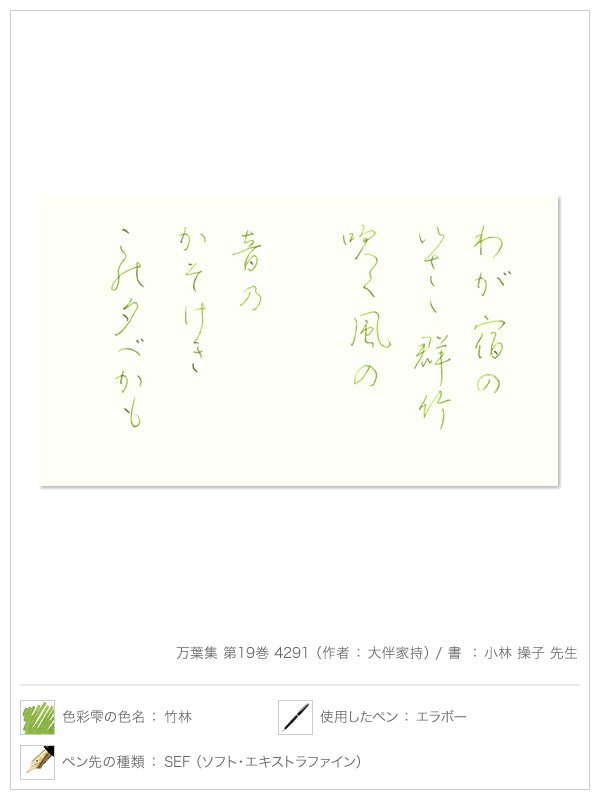 わが宿の
いさゝ群竹
吹く風の
音乃
かそけき
この夕べかも
万葉集 第19巻 4291 (作者 : 大伴家持) / 書 : 小林 操子 先生
色彩雫の色名 : 竹林
使用したペン : エラボー
ペン先の種類 : SEF (ソフト・エキストラファイン)